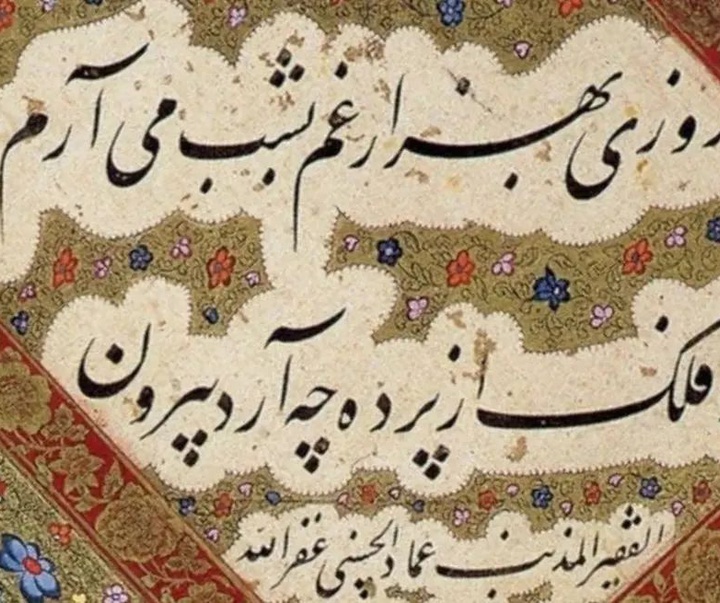 روزی بهزار غم بشب می آرم
فلک از پرده چه آرد بیرون
الفقیر المذنب عماد الحسنی غفر الله